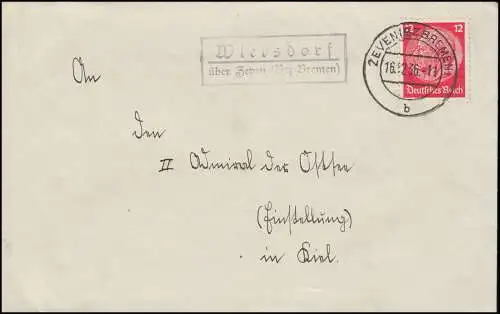 Wiersdorf
über Zeven (Bez Bremen)
ZEVEN (BZ. BREMEN)
16.12.36.-11
b
12 12
Deutsches Reich
An
den
II Admiral der Ostsee
(Einstellung)
in Kiel.